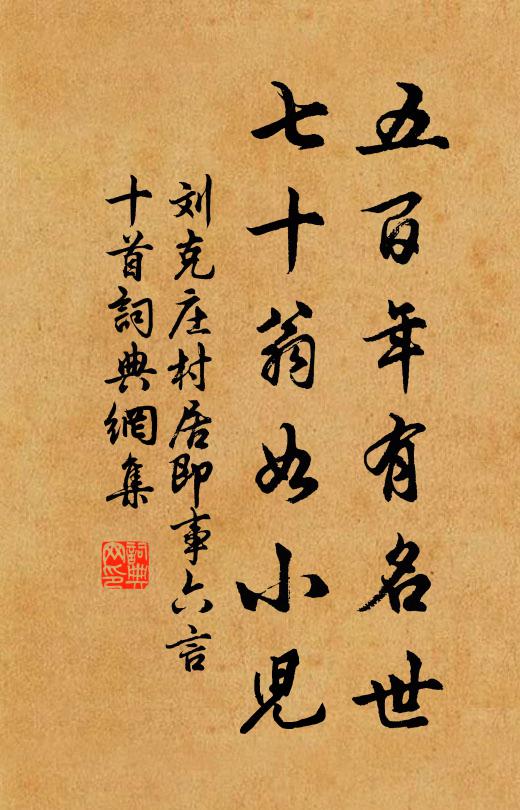 五百年有名世
七十翁如小児
刘克庄村居即事六言
十首詞典網集
詞典网印